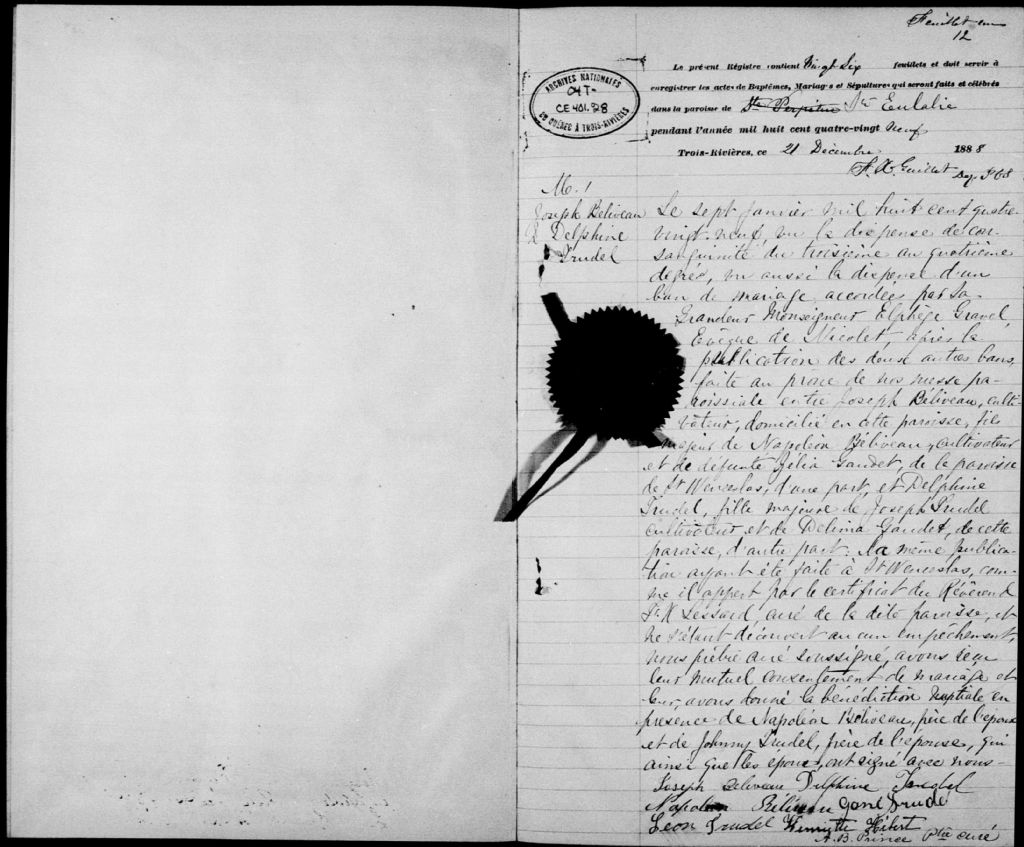 Feuillet un
12
Le présent Régistre contient Vingt Six feuillets et doit servir à
enregistrer les actes de Baptêmes, Mariages et Sépultures qui seront faits et célébrés
dans la paroisse de Ste Perpétue Ste Eulalie
pendant l'année mil huit cent quatre-vingt neuf
Trois-Rivières, ce 21 Décembre 1888
ARCHIVES NATIONALES
04T-
CE 401.98
DU QUÉBEC À TROIS-RIVIÈRES
F. X. Guillet Dep. P.C.S
M. 1
Joseph Béliveau
& Delphine
Trudel
Le sept janvier mil huit cent quatre-
vingt-neuf, vu la dispense de con-
sanguinité du troisième au quatrième
degré, vu aussi la dispense d'un
ban de mariage accordées par Sa
Grandeur Monseigneur Elphège Gravel,
Evêque de Nicolet, après la
publication des deux autres bans,
faite au prône de nos messe pa-
roissiale entre Joseph Béliveau, culti-
vateur, domicilié en cette paroisse, fils
majeur de Napoléon Béliveau, cultivateur
et de défunte Zélia Gaudet, de la paroisse
de St Wenceslas, d'une part, et Delphine
Trudel, fille majeure de Joseph Trudel
cultivateur et de Delima Gaudet, de cette
paroisse, d'autre part. La même publica-
tion ayant été faite à St Wenceslas, com-
me il appert par le certificat du Révérend
Lessard, curé de la dite paroisse, et
ne s'étant découvert aucun empêchement,
nous prêtre curé soussigné, avons reçu
leur mutuel consentement de mariage et
leur avons donné la bénédiction nuptiale en
présence de Napoléon Béliveau, père de l'époux
et de Johnny Trudel, frère de l'épouse, qui
ainsi que les époux, ont signé avec nous-
Joseph Beliveau Delphine Trudel
Napoléon Béliveau Trudel
Léon Trudel Hébert
A. B. Prince Ptre curé